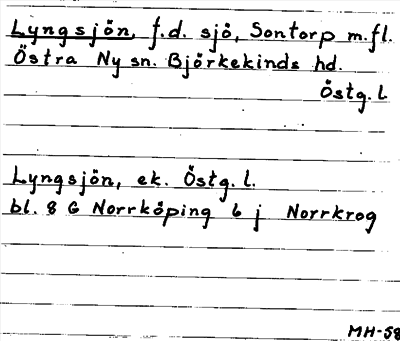 Lyngsjön, f.d. sjö, Sontorp m.fl.
Östra Ny sn. Björkekinds hd.
Östg. l.
Lyngsjön, ek. Östg. l.
bl. 8 G Norrköping 6 j Norrkrog
MH-58